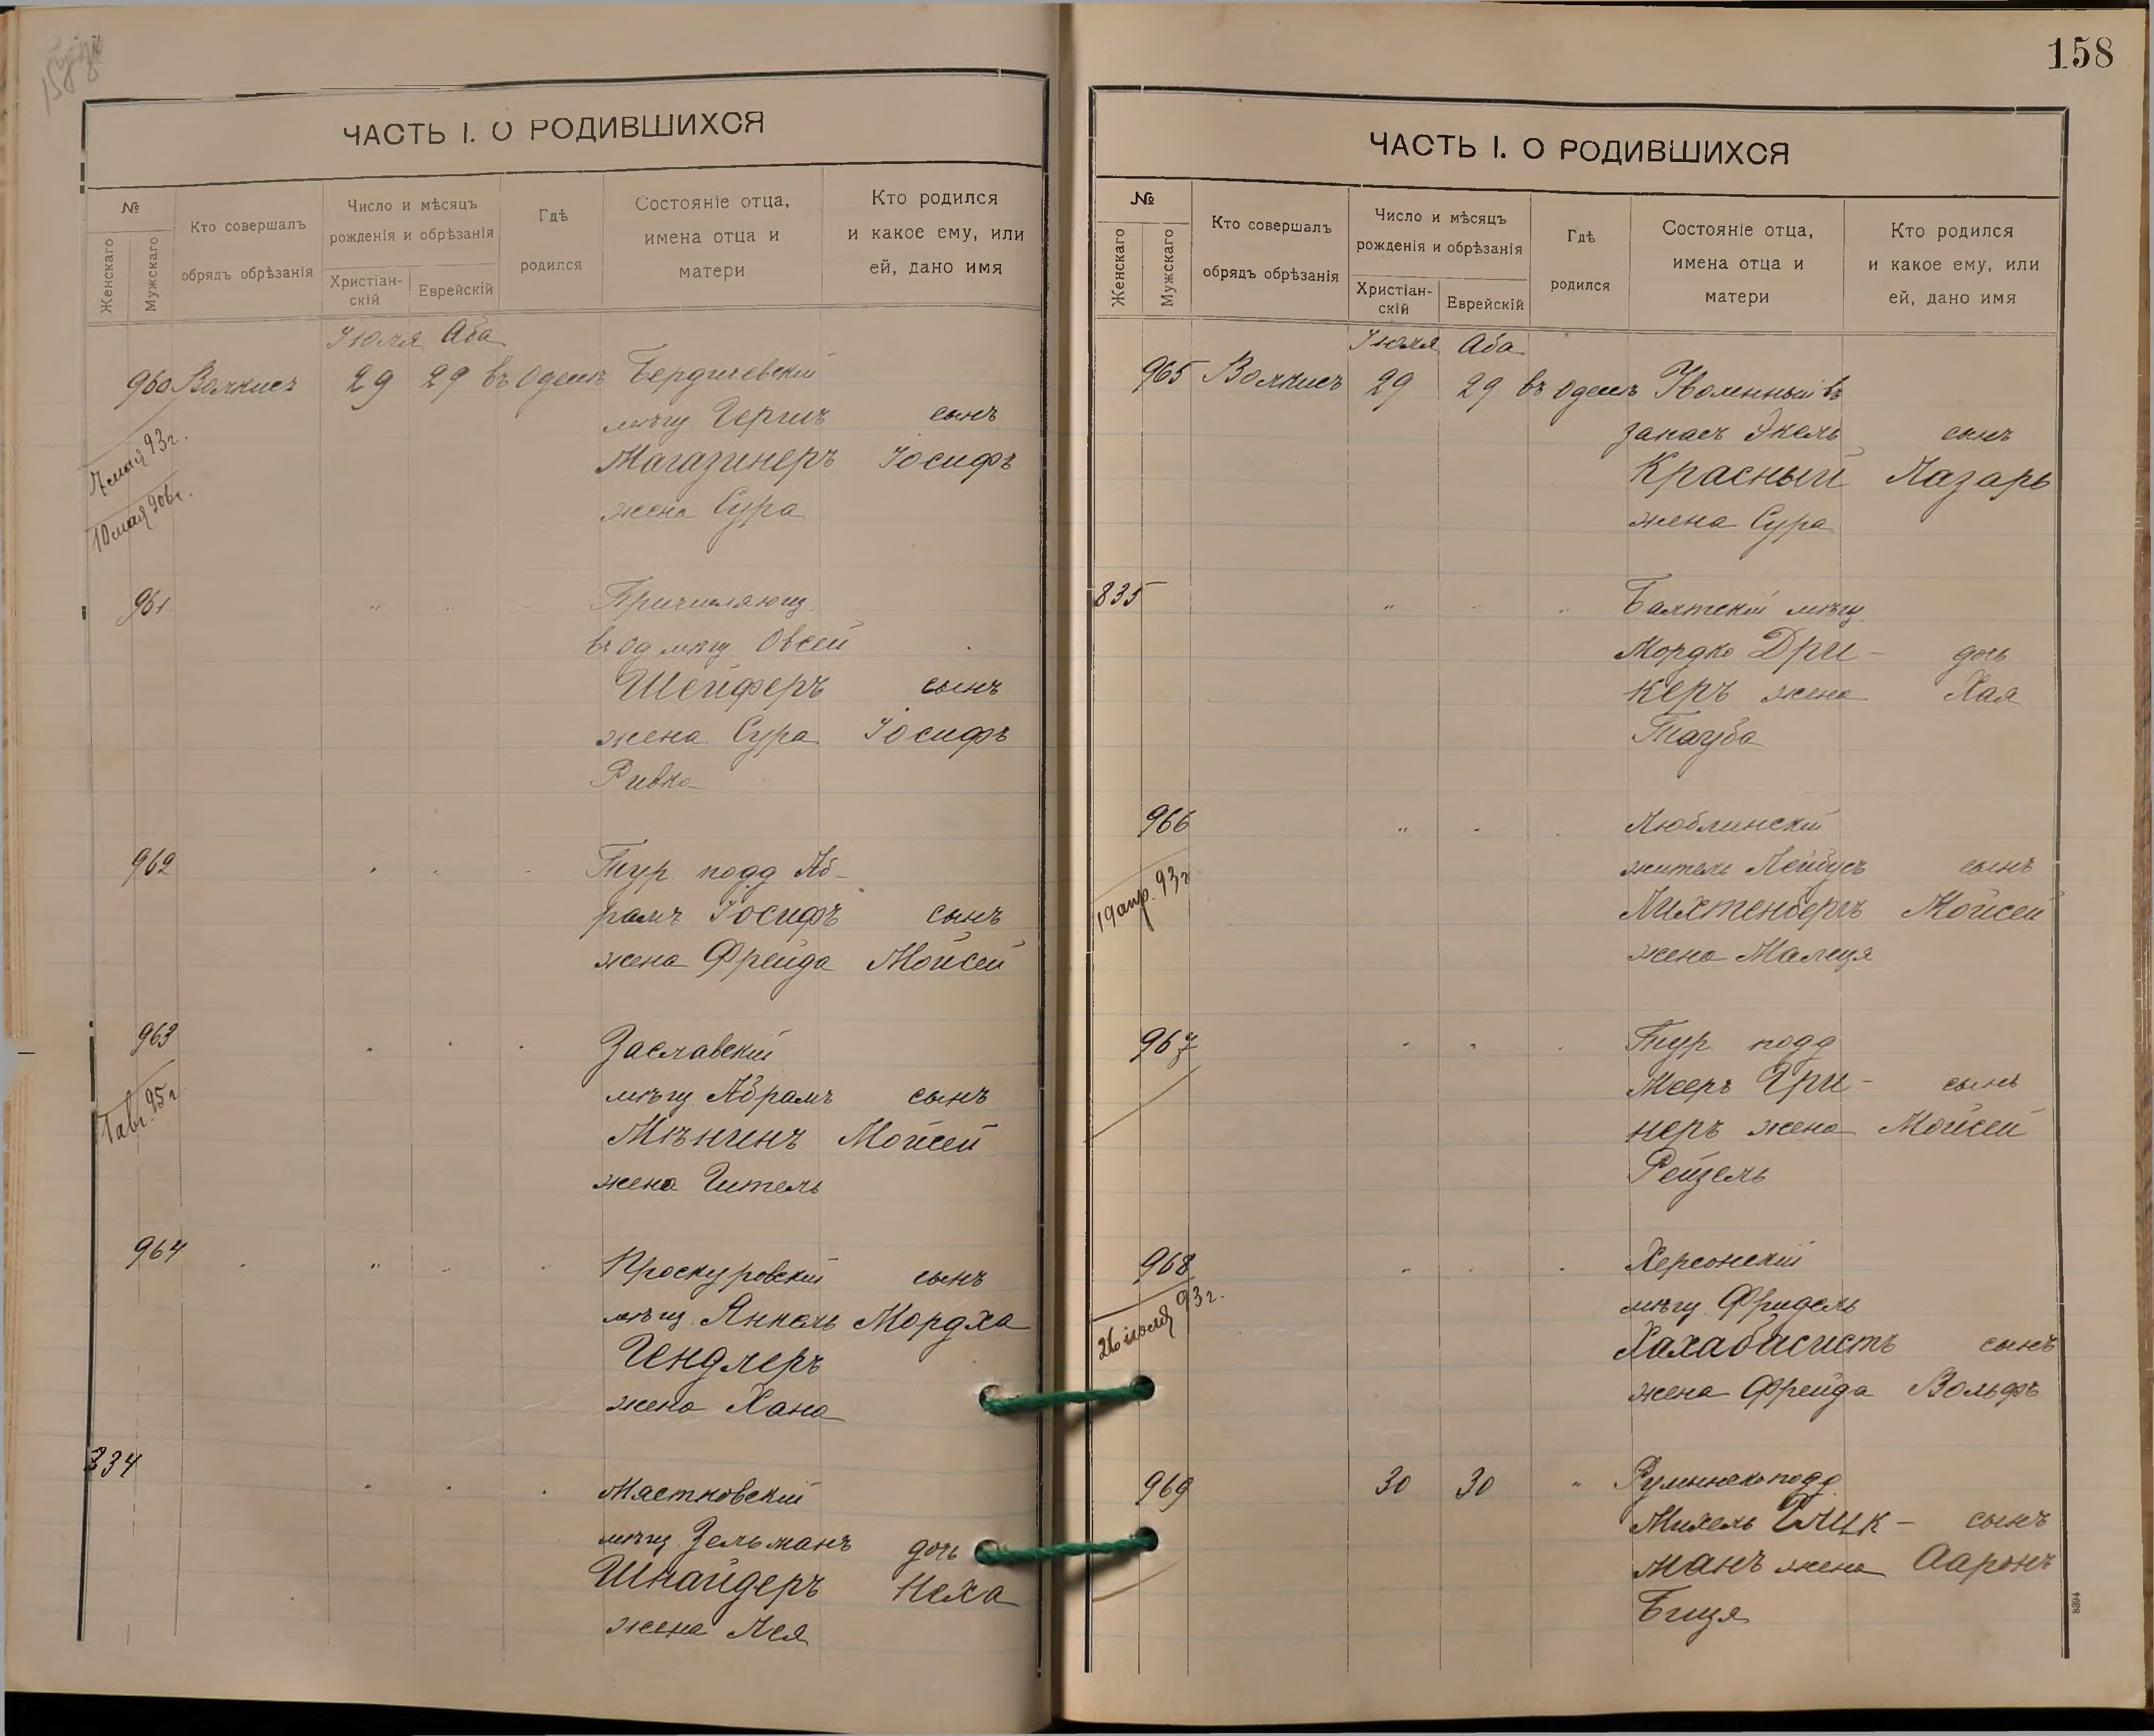 158
ЧАСТЬ I. О РОДИВШИХСЯ
№
Женскаго
Мужскаго
Кто совершалъ
обрядъ обрѣзанія
Число и мѣсяцъ
рожденія и обрѣзанія
Христіан-
скій
Еврейскій
Гдѣ
родился
Состояніе отца,
имена отца и
матери
Кто родился
и какое ему, или
ей, дано имя
Іюля Аба
960 29 29 въ Одессѣ Бердичевскій
мѣщ Гершъ сынъ
Магазинеръ Іосифъ
жена Сура
10 мая 906 г.
961 " " Причисляющ
въ Од мѣщ. Овсей
Шейферъ сынъ
жена Сура Іосифъ
Ривка
962 Тур. подд Аб-
рамъ Іосифъ сынъ
жена Фрейда Мойсей
963 Заславскій
мѣщ Абрамъ сынъ
Мѣнинъ Мойсей
жена Гитель
1 авг. 95 г
964 " Проскуровскій сынъ
мѣщ. Янкель Мордха
Гендлеръ
жена Хана
834
мѣщ Зельманъ дочь
Шнайдеръ Неха
жена Лея
ЧАСТЬ I. О РОДИВШИХСЯ
№
Женскаго
Мужскаго
Кто совершалъ
обрядъ обрѣзанія
Число и мѣсяцъ
рожденія и обрѣзанія
Христіан-
скій
Еврейскій
Гдѣ
родился
Состояніе отца,
имена отца и
матери
Кто родился
и какое ему, или
ей, дано имя
Іюля Аба
965 29 29 въ Одессѣ Уволенный въ
запасъ Экель сынъ
Красный Лазарь
жена Сура
835 " " Балтскій мѣщ.
Мордко Дри- дочь
керъ жена Хая
Тауба
966 " Люблинскій
житель Лейбусъ сынъ
Лихтенбергъ Мойсей
жена Малця
19 апр. 93 г
967 Тур. подд
Мееръ Гри- сынъ
неръ жена Мойсей
Рейзель
968 Херсонскій
мѣщ. Фридель
Хахабасистъ сынъ
жена Фрейда Вольфъ
26 іюля 93 г.
969 30 30 " Румынско подд.
Михель Глик- сынъ
манъ жена Ааронъ
Бися
8394